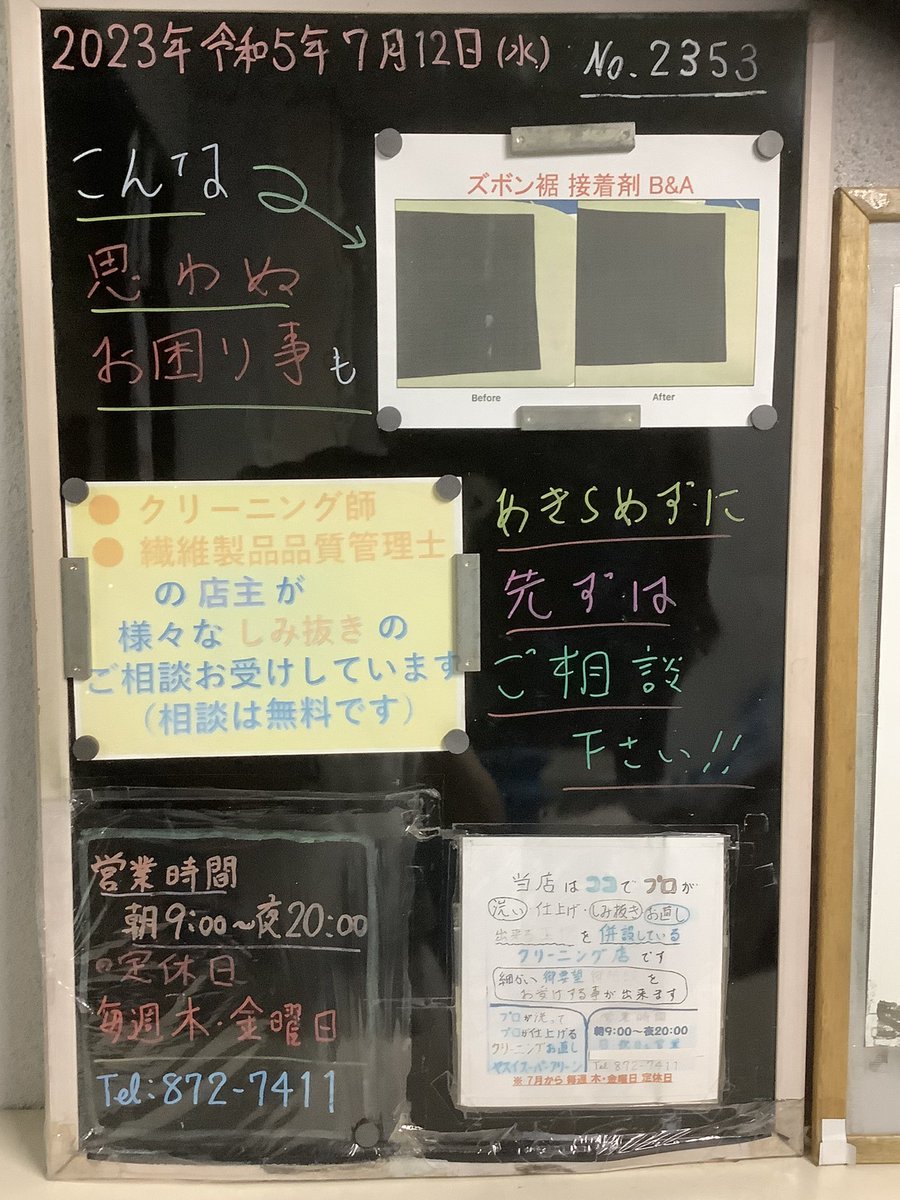 2023年令和5年7月12日(水)
No.2353
こんな
思わぬ
お困り事も
ズボン裾 接着剤 B&A
Before
After
● クリーニング師
● 繊維製品品質管理士
の店主が
様々なしみ抜きの
ご相談お受けしています
(相談は無料です)
あきらめずに
先ずは
ご相談
下さい!!
営業時間
朝9:00~夜20:00
定休日
毎週木・金曜日
Tel:872-7411
当店はココでプロが
洗い・仕上げ・しみ抜き お直し
出来る を併設している
クリーニング店です
細かい御要望 を
お受けする事が出来ます
プロが洗って
プロが仕上げる
クリーニングお直し
ヤスイスーパークリーン
営業時間
朝9:00~夜20:00
Tel 872-7411
※7月から 毎週 木・金曜日 定休日